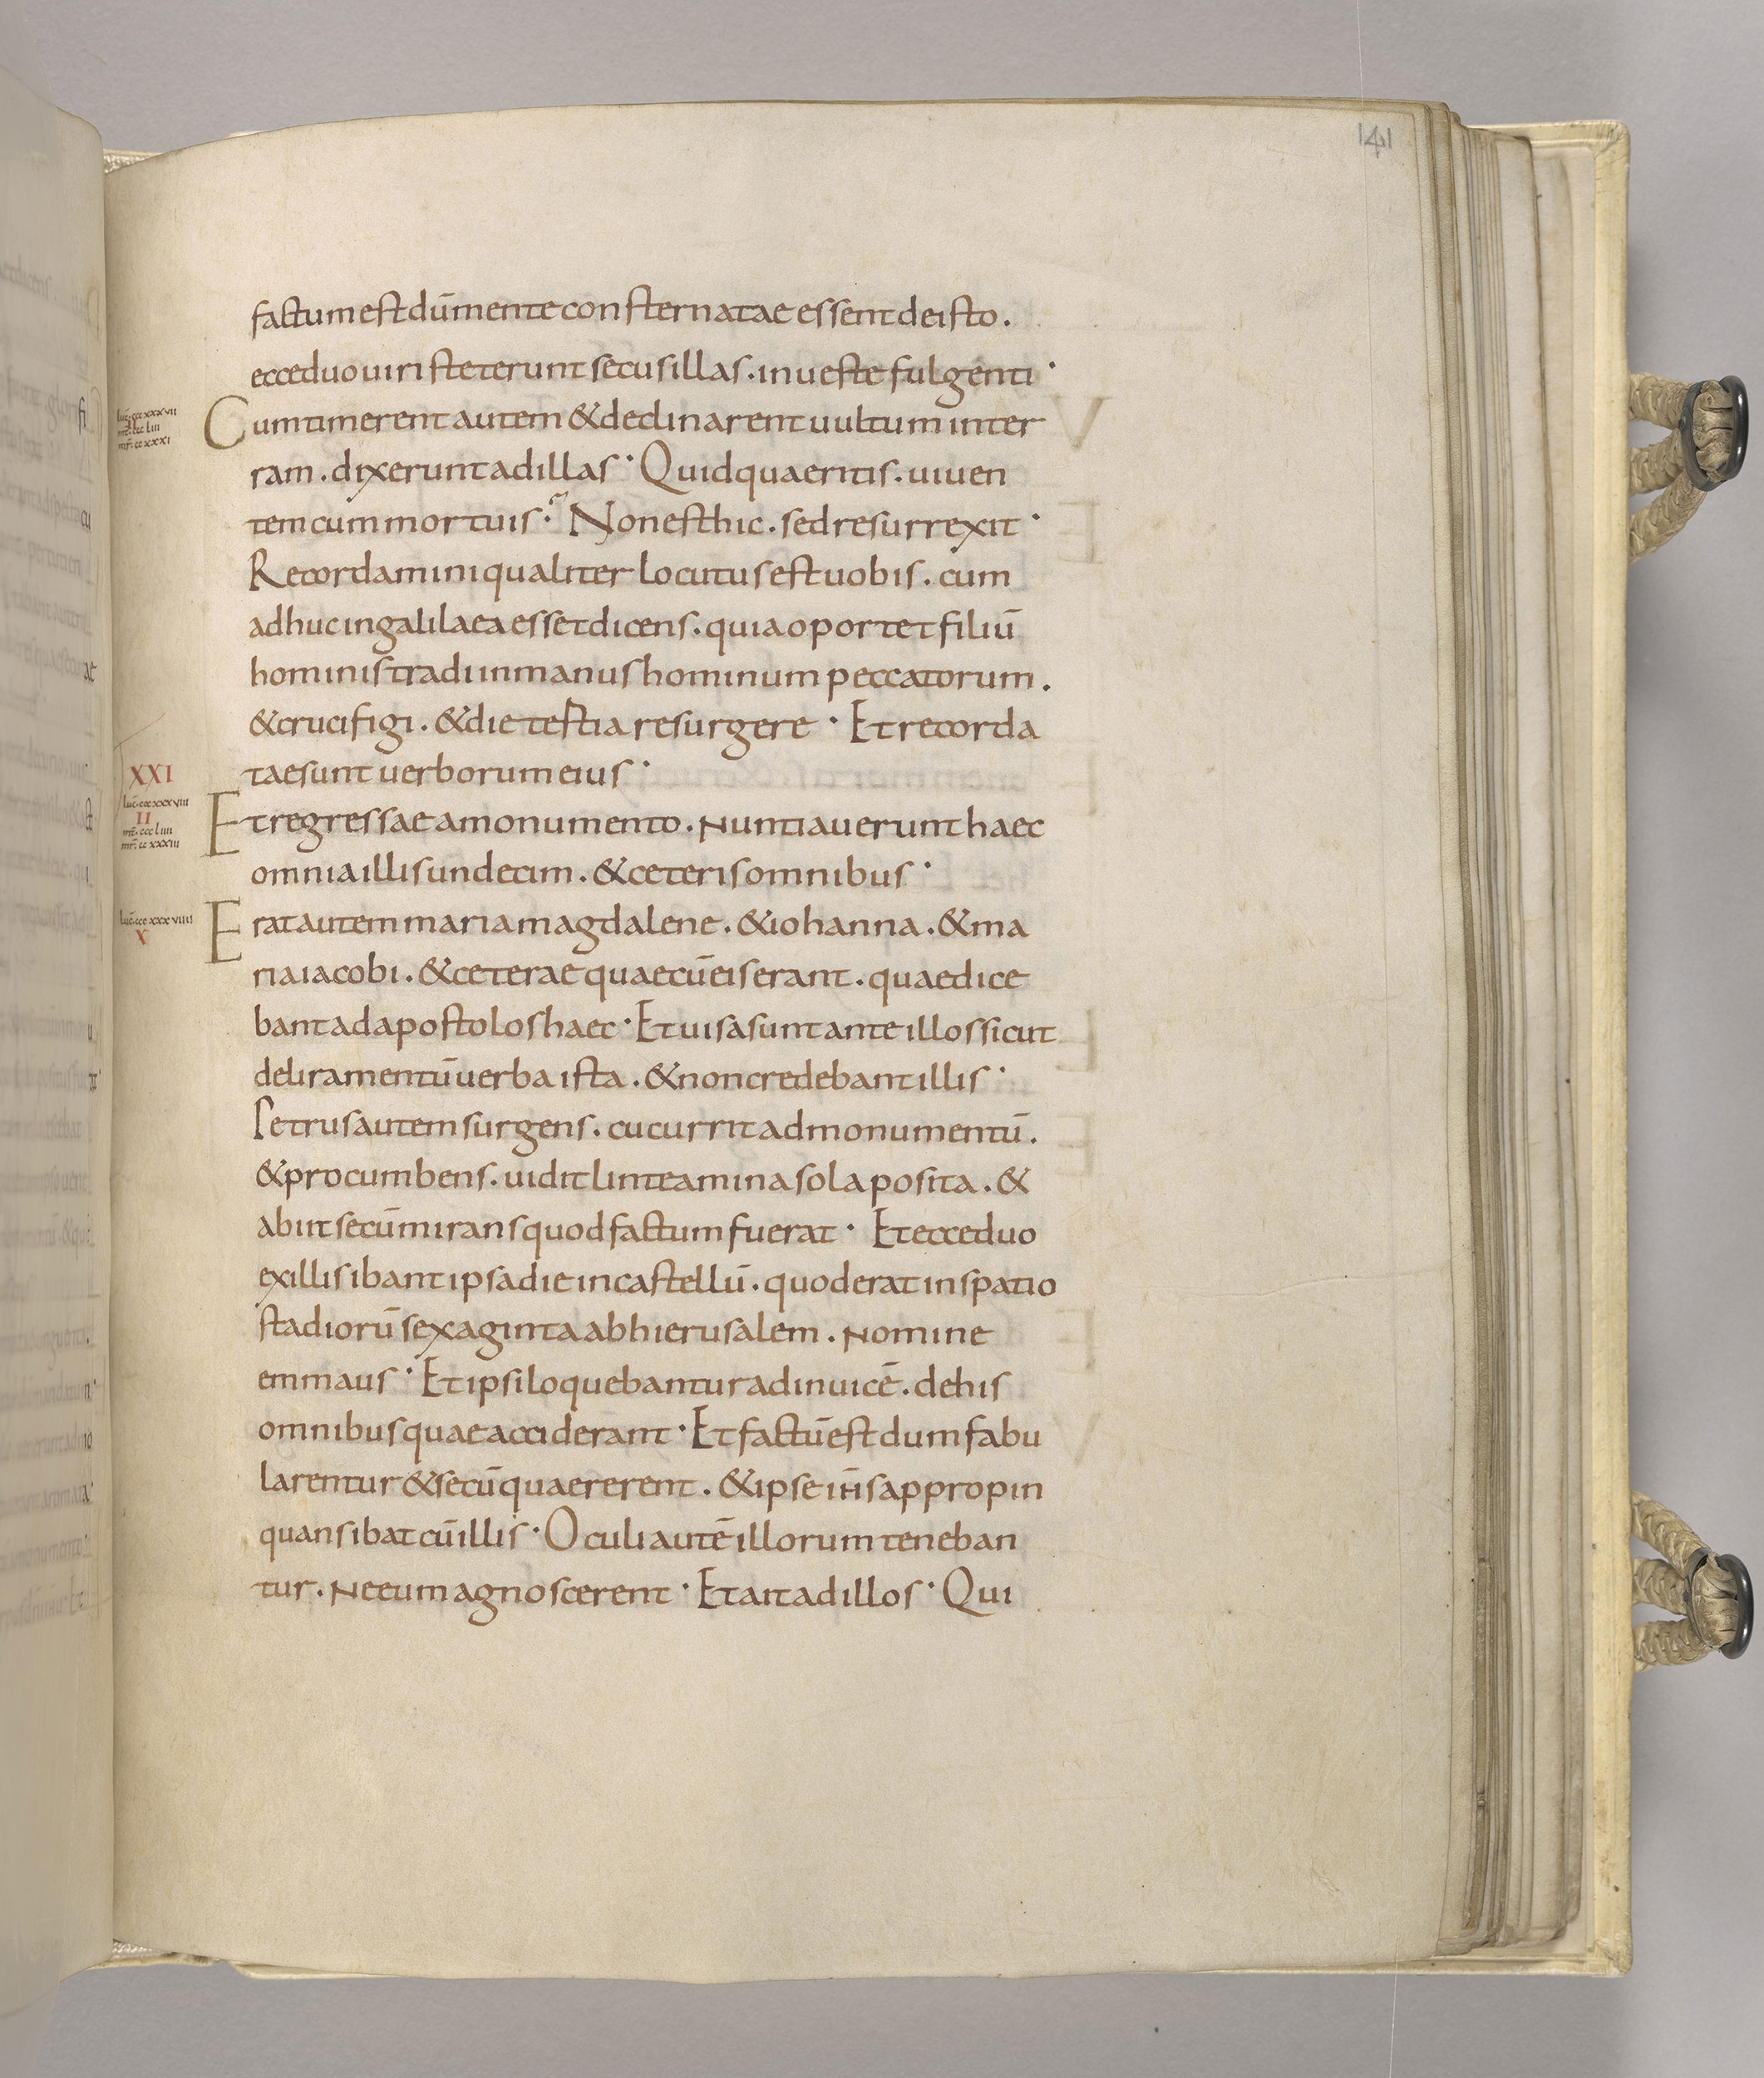 141
factum est dū mente consternatae essent de isto.
ecce duo uiri steterunt secus illas. in ueste fulgenti·
luc̄. ccc xxxvii
II
mt̄. ccc liii
mr̄. cc xxxi
Cum timerent autem & declinarent uultum in ter
ram. dixerunt ad illas· Quid quaeritis. uiuen
tem cum mortuis· Non est hic. sed resurrexit·
Recordamini qualiter locutus est uobis. cum
adhuc in galilaea esset dicens. quia oportet filiū
hominis tradi in manus hominum peccatorum.
& crucifigi. & die tertia resurgere· Et recorda
XXI
tae sunt uerborum eius·
luc̄. ccc xxxviii
II
mt̄. ccc liiii
mr̄. cc xxxiii
Et regressae a monumento. Nuntiauerunt haec
omnia illis undecim. & ceteris omnibus·
luc̄. ccc xxxviiii
X
Erat autem maria magdalene. & iohanna. & ma
ria iacobi. & ceterae quae cū eis erant. quae dice
bant ad apostolos haec· Et uisa sunt ante illos sicut
deliramentū uerba ista. & non credebant illis·
Petrus autem surgens. cucurrit ad monumentū.
& procumbens. uidit linteamina sola posita. &
abiit secū mirans quod factum fuerat· Et ecce duo
ex illis ibant ipsa die in castellū. quod erat in spatio
stadiorū sexaginta ab hierusalem. Nomine
emmaus· Et ipsi loquebantur ad inuicē. de his
omnibus quae acciderant· Et factū est dum fabu
larentur & secū quaererent. & ipse ih̄s appropin
quans ibat cū illis· Oculi autē illorum teneban
tur. Ne eum agnoscerent· Et ait ad illos· Qui